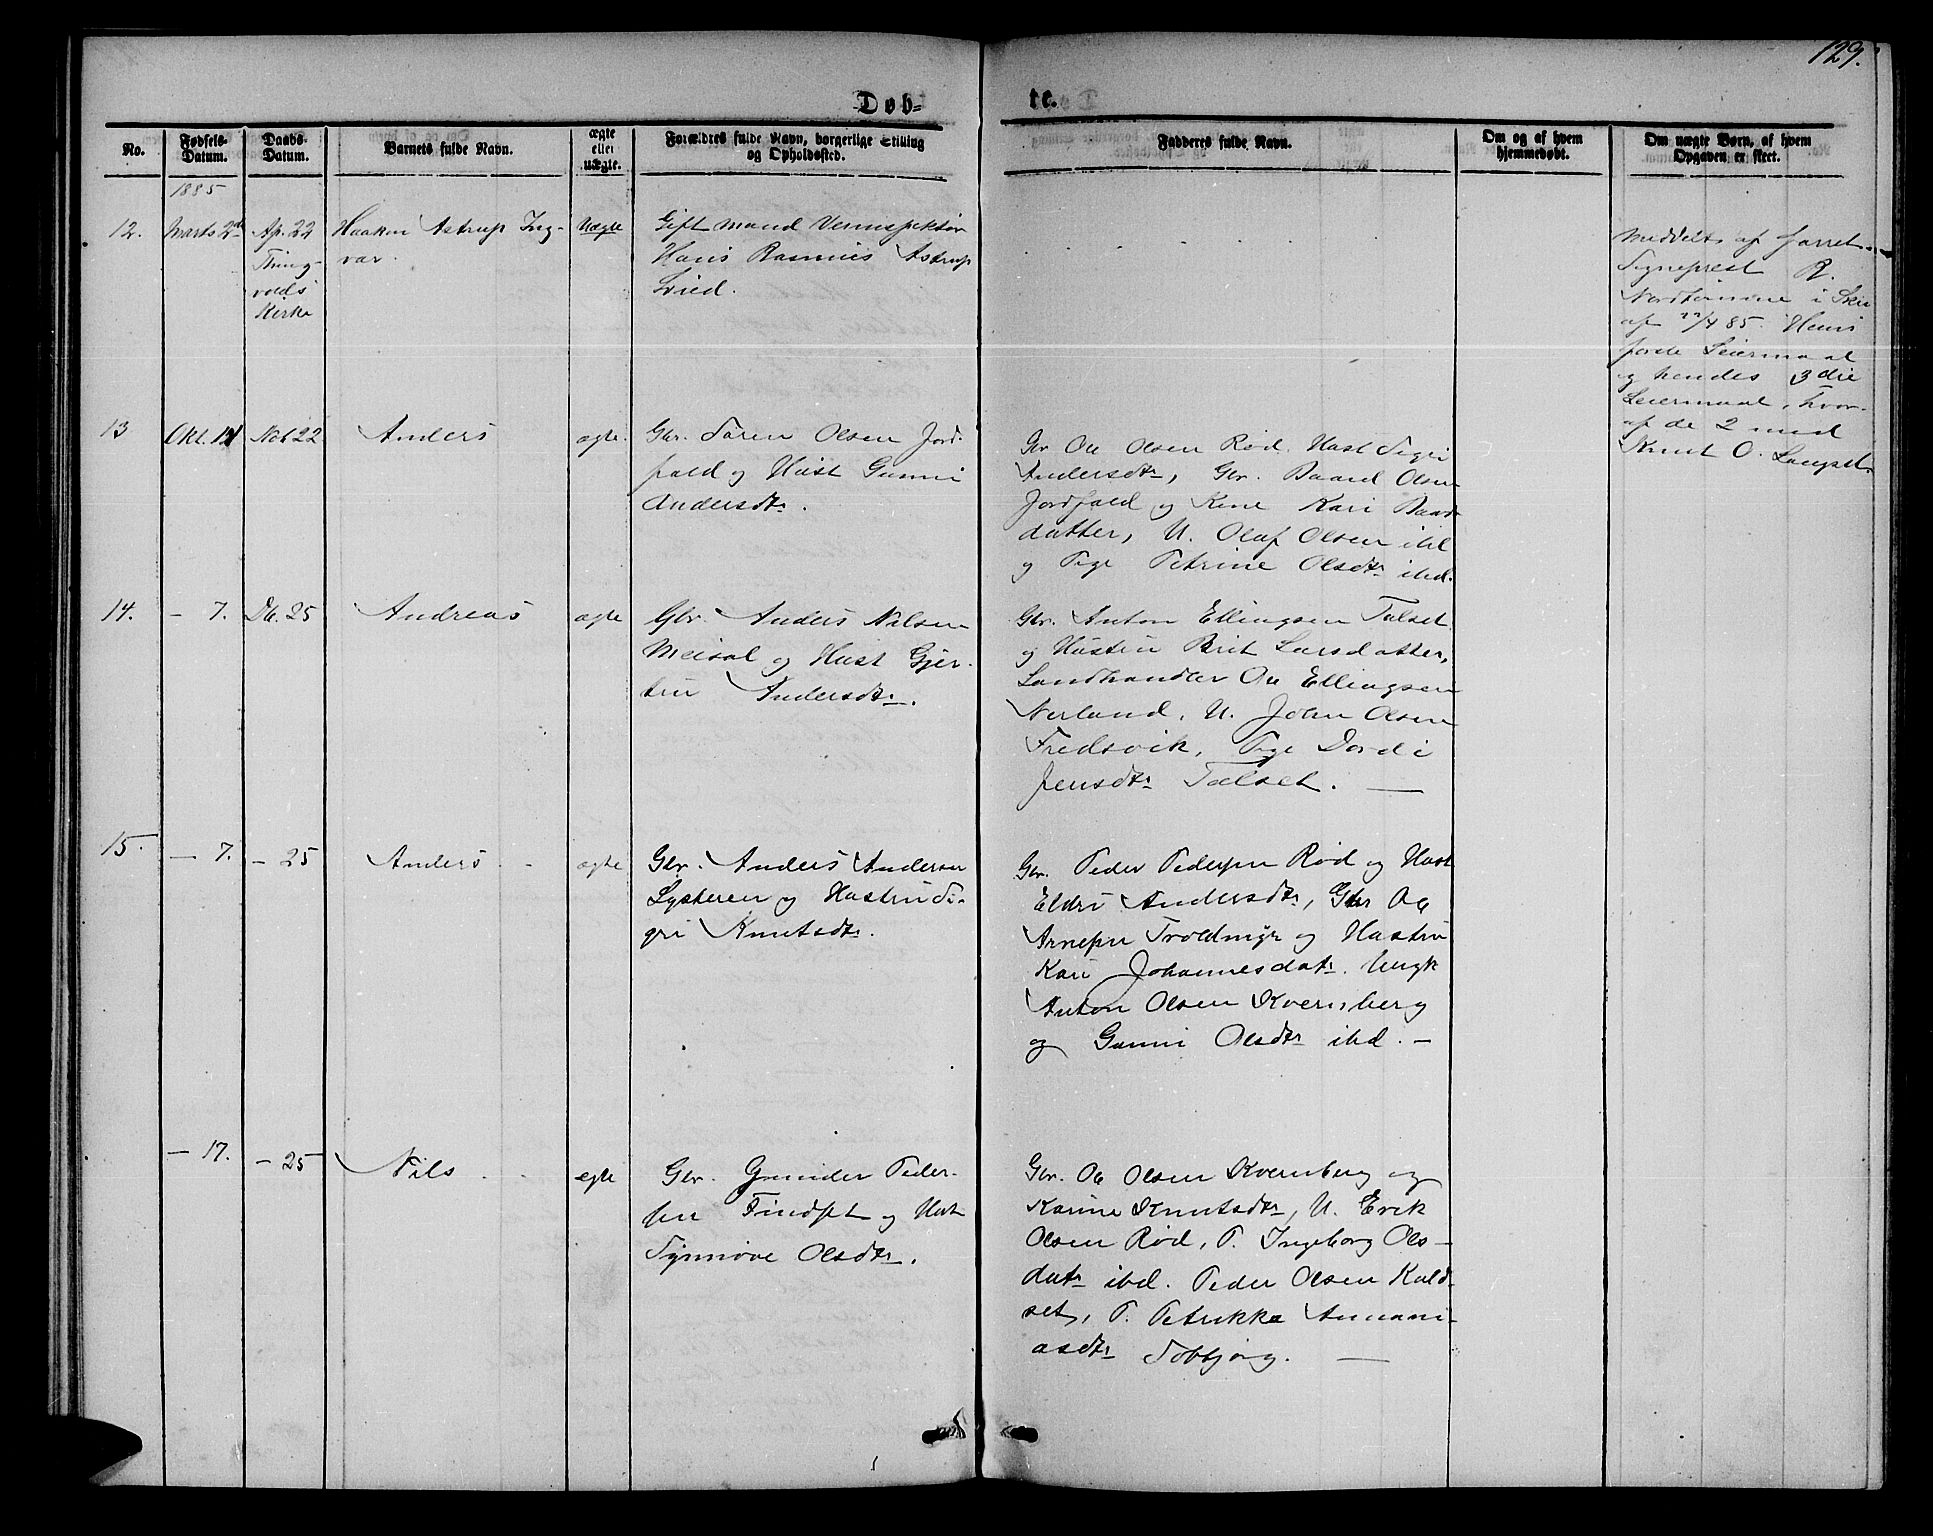 129.
Døb-
te.
No.
Fødsels-
Datum.
Daabs-
Datum.
Barnets fulde Navn.
ægte
eller
uægte.
Forældres fulde Navn, borgerlige Stilling
og Opholdssted.
Fadderes fulde Navn.
Om og af hvem
hjemmedøbt.
Om uægte Børn, af hvem
Opgaven er sket.
1885
12.
Marts 2de
Ap. 22
Thing-
volds
Kirke
Haakon Astrup Ing-
var.
Uægte
Gift mand
Hans Rasmus Astrup
Meddelt af
Sogneprest R.
i
af 22/4 85. Hans
første Leiermaal
og hendes 3die
Leiermaal, hvor-
af de 2 med
Knut O.
13
Okt.
Nov 22
Anders
ægte.
Gbr. Søren Olsen Jord-
fald og Hust Gunni
Andersdtr.
Gbr Ole Olsen Rød. Hust Sigri
Andersdtr, Gbr. Baard Olsen
Jordfald og Kone Kari Baards
datter, U. Olaf Olsen ibd
og Pige Petrine Olsdtr ibd.
14.
- 7.
Db. 25
Andreas
ægte
Gbr. Anders Nilsen
Meisal og Hust Gjer-
tru Andersdtr.
Gbr. Anton Ellingsen Talset
og Hustru Brit Larsdatter,
Landhandler Ole Ellingsen
Nerland, U. John Olsen
Fredsvik, Pige Dordi
Jensdtr Talset. —
15.
— 7.
- 25
Anders
ægte
Gbr. Anders Andersen
Lysteren og Hustru Si-
gri Knutsdtr.
Gbr. Peder Pedersen Rød og Hust
Eldri Andersdtr, Gbr Ole
Arnesen Troldmyr og Hustru
Kari Johannesdatr. Ungk
Anton Olsen Kvernberg
og Gunni Olsdtr ibd. —
— 17.
- 25
Nils
egte
Gbr. Gunder Peder-
sen Findset og Hust
Synnøve Olsdtr.
Gbr. Ole Olsen Kvernberg og
Karine Knutsdtr, U. Erik
Olsen Rød, P. Ingeborg Ols-
datr ibd. Peder Olsen Kald-
set, P. Petrikke Anani-
asdtr Solbjørg. —